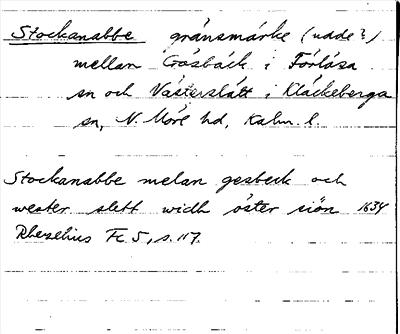 Stockanabbe gränsmärke (udde?)
mellan Gåsbäck i Förlösa
sn och Västerslätt i Kläckeberga
sn, N. Möre hd, Kalm. l.
Stockanabbe melan gesbeck och
wester slett widh öster siön 1634
Rhezelius Fc 5, s. 117.